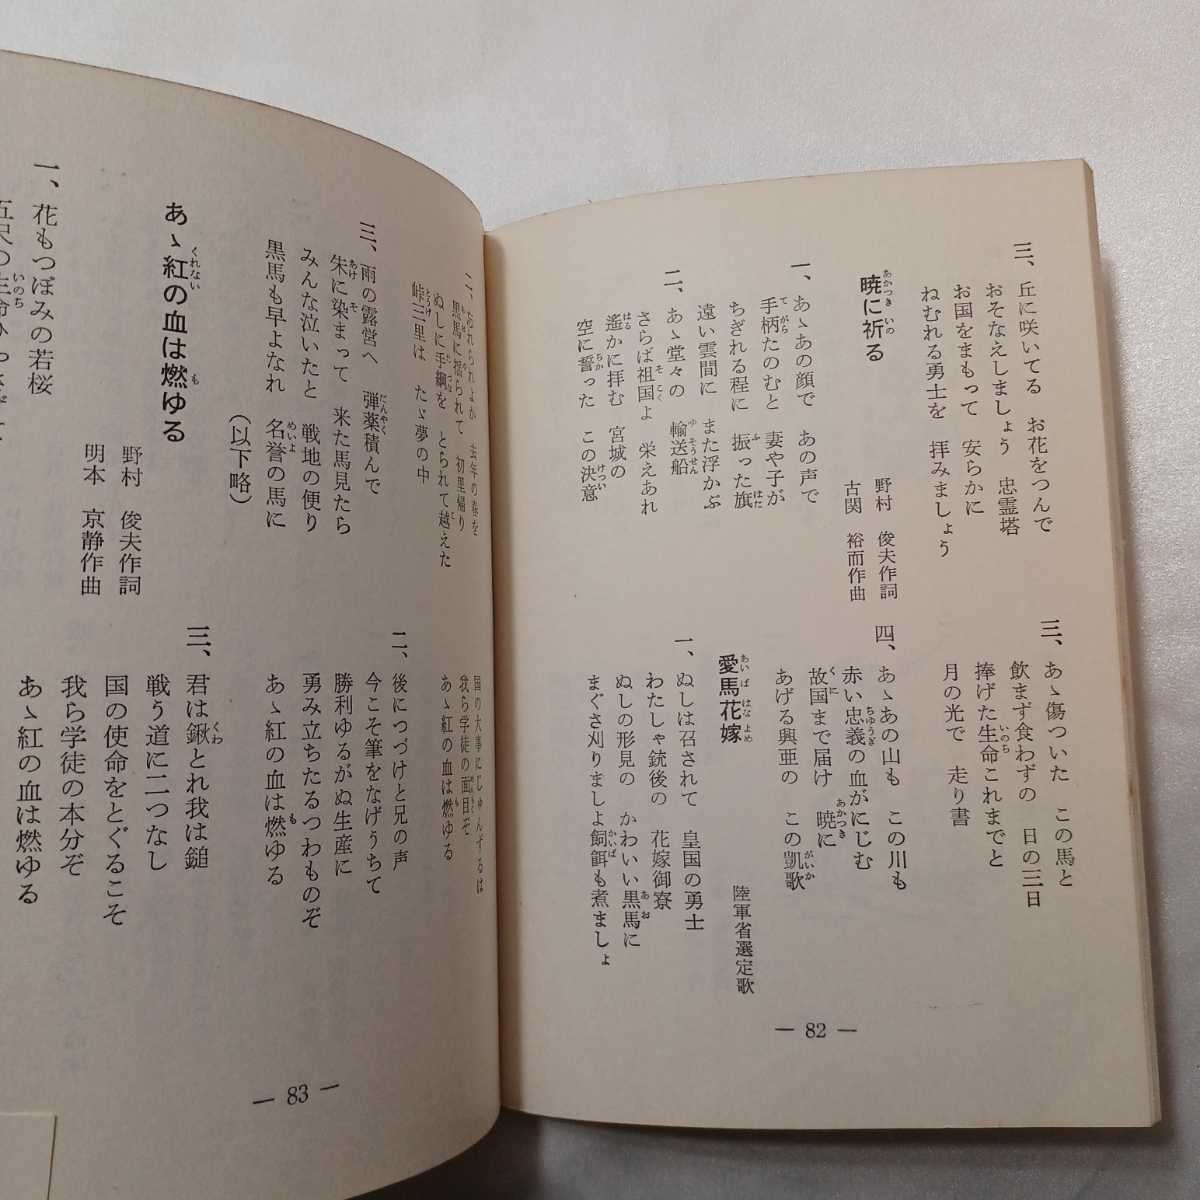 三、丘に咲いてる　お花をつんで
おそなえしましょう　忠霊塔
お国をまもって　安らかに
ねむれる勇士を　拝みましょう
暁に祈る
あかつき いの
野村　俊夫作詞
古関　裕而作曲
一、あゝあの顔で　あの声で
手柄たのむと　妻や子が
てがら
ちぎれる程に　振った旗
ふ はた
遠い雲間に　また浮かぶ
二、あゝ堂々の　輸送船
ゆそうせん
さらば祖国よ　栄えあれ
そこく
遙かに拝む　宮城の
はる
空に誓った　この決意
ちか けつい
三、あゝ傷ついた　この馬と
飲まず食わずの　日の三日
捧げた生命これまでと
いのち
月の光で　走り書
四、あゝあの山も　この川も
赤い忠義の血がにじむ
ちゅうぎ
故国まで届け　暁に
くに あかつき
あげる興亜の　この凱歌
がいか
愛馬花嫁
あいばはなよめ
陸軍省選定歌
一、ぬしは召されて　皇国の勇士
わたしゃ銃後の　花嫁御寮
ぬしの形見の　かわいい黒馬に
あお
まぐさ刈りましょ飼餌も煮ましょ
かいば
— 82 —
二、忘れられよか　去年の春を
黒馬に揺られて　初里帰り
ぬしに手綱を　とられて越えた
峠三里は　たゞ夢の中
三、雨の露営へ　弾薬積んで
だんやく
朱に染まって　来た馬見たら
あけ そ
みんな泣いたと　戦地の便り
黒馬も早よなれ　名誉の馬に
めいよ
（以下略）
あゝ紅の血は燃ゆる
くれない も
野村　俊夫作詞
明本　京静作曲
一、花もつぼみの若桜
五尺の生命ひっさげて
いのち
国の大事にじゅんずるは
我ら学徒の面目ぞ
あゝ紅の血は燃ゆる
二、後につづけと兄の声
今こそ筆をなげうちて
勝利ゆるがぬ生産に
勇み立ちたるつわものぞ
あゝ紅の血は燃ゆる
も
三、君は鍬とれ我は鎚
くわ
戦う道に二つなし
国の使命をとぐるこそ
我ら学徒の本分ぞ
あゝ紅の血は燃ゆる
— 83 —